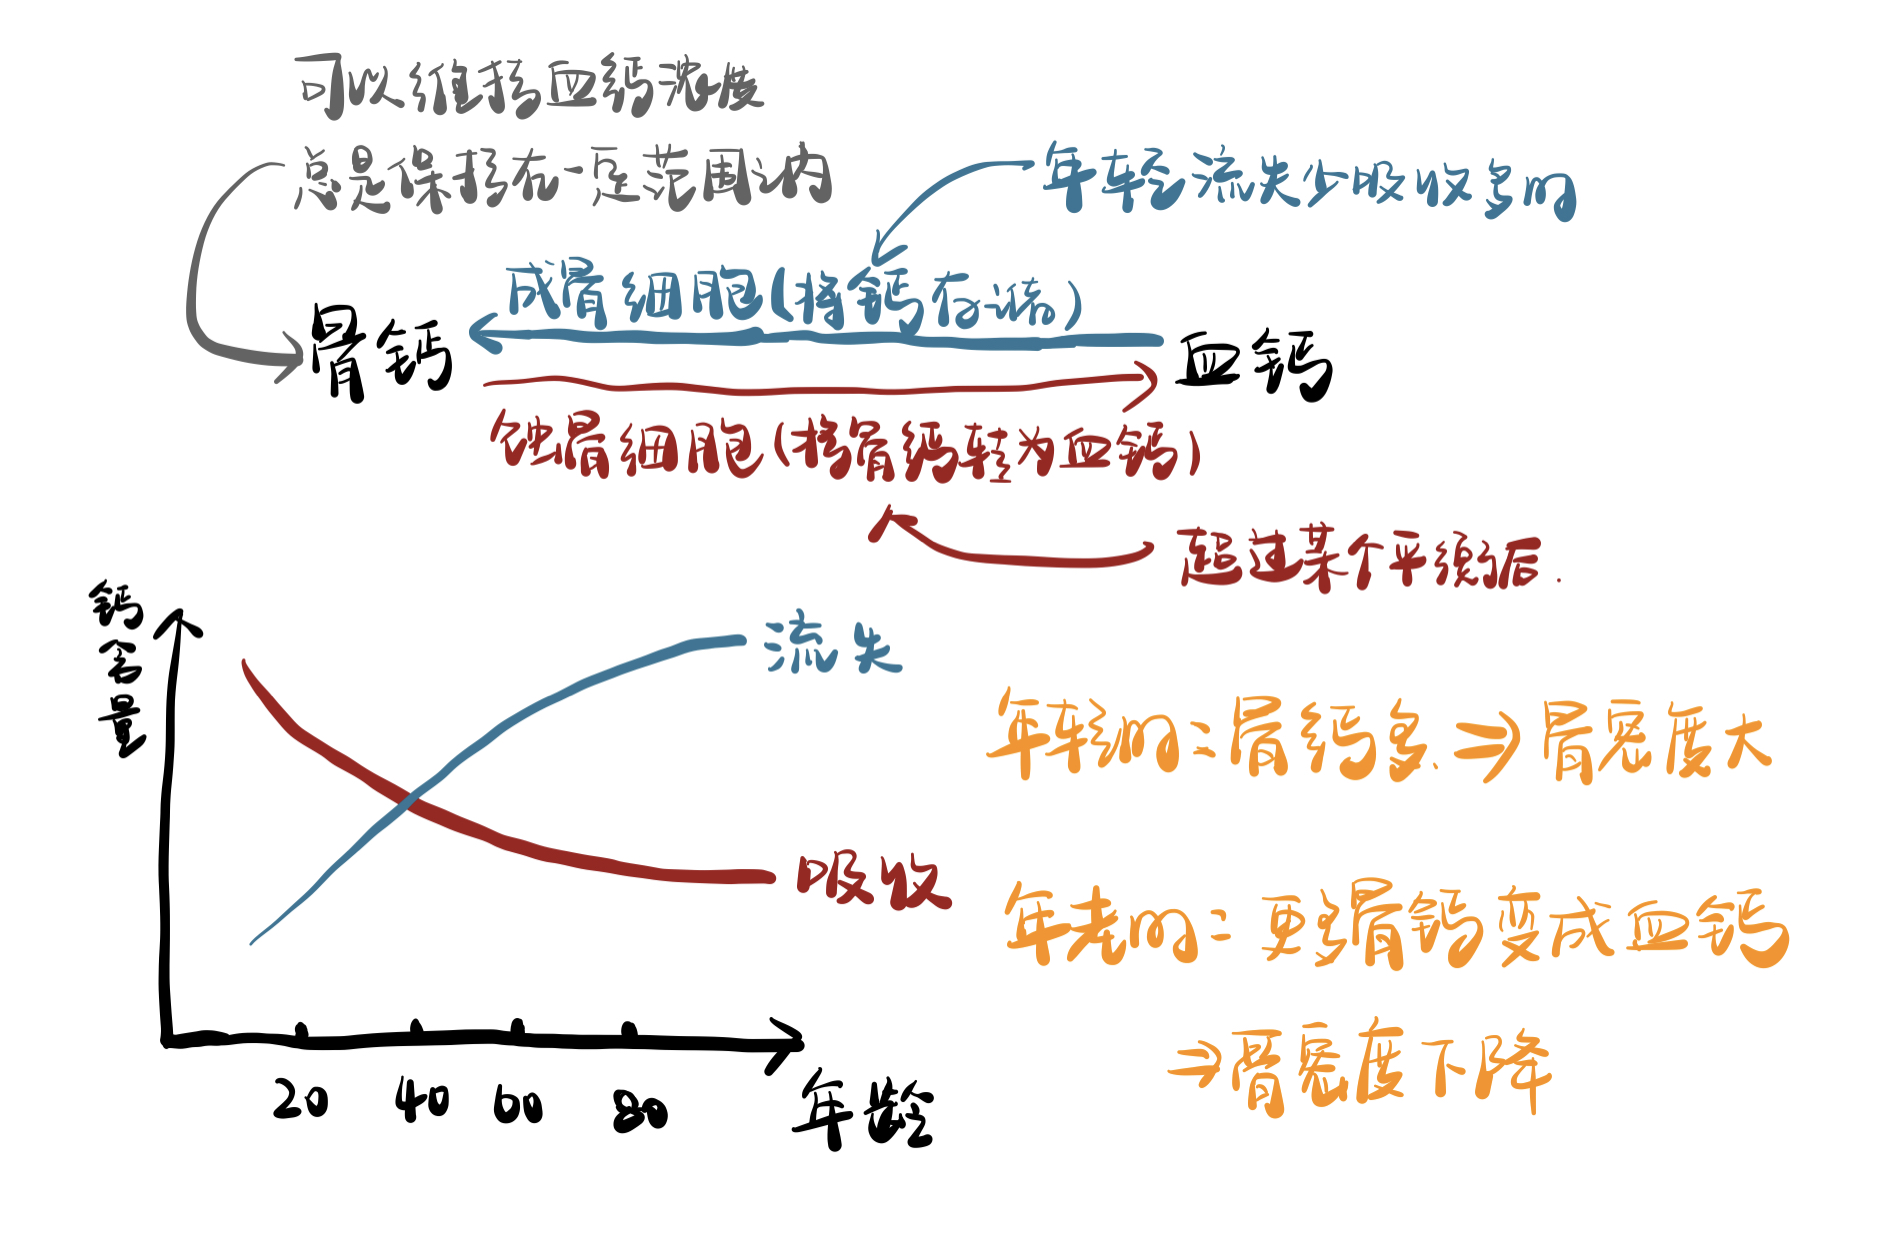 可以维持血钙浓度
总是保持在一定范围之内
年轻流失少吸收多时
成骨细胞(将钙存储)
骨钙
血钙
蚀骨细胞(将骨钙转为血钙)
超过某个平衡后.
钙含量
流失
吸收
20 40 60 80
年龄
年轻时:骨钙多. ⇒骨密度大
年老时:更多骨钙变成血钙
⇒骨密度下降